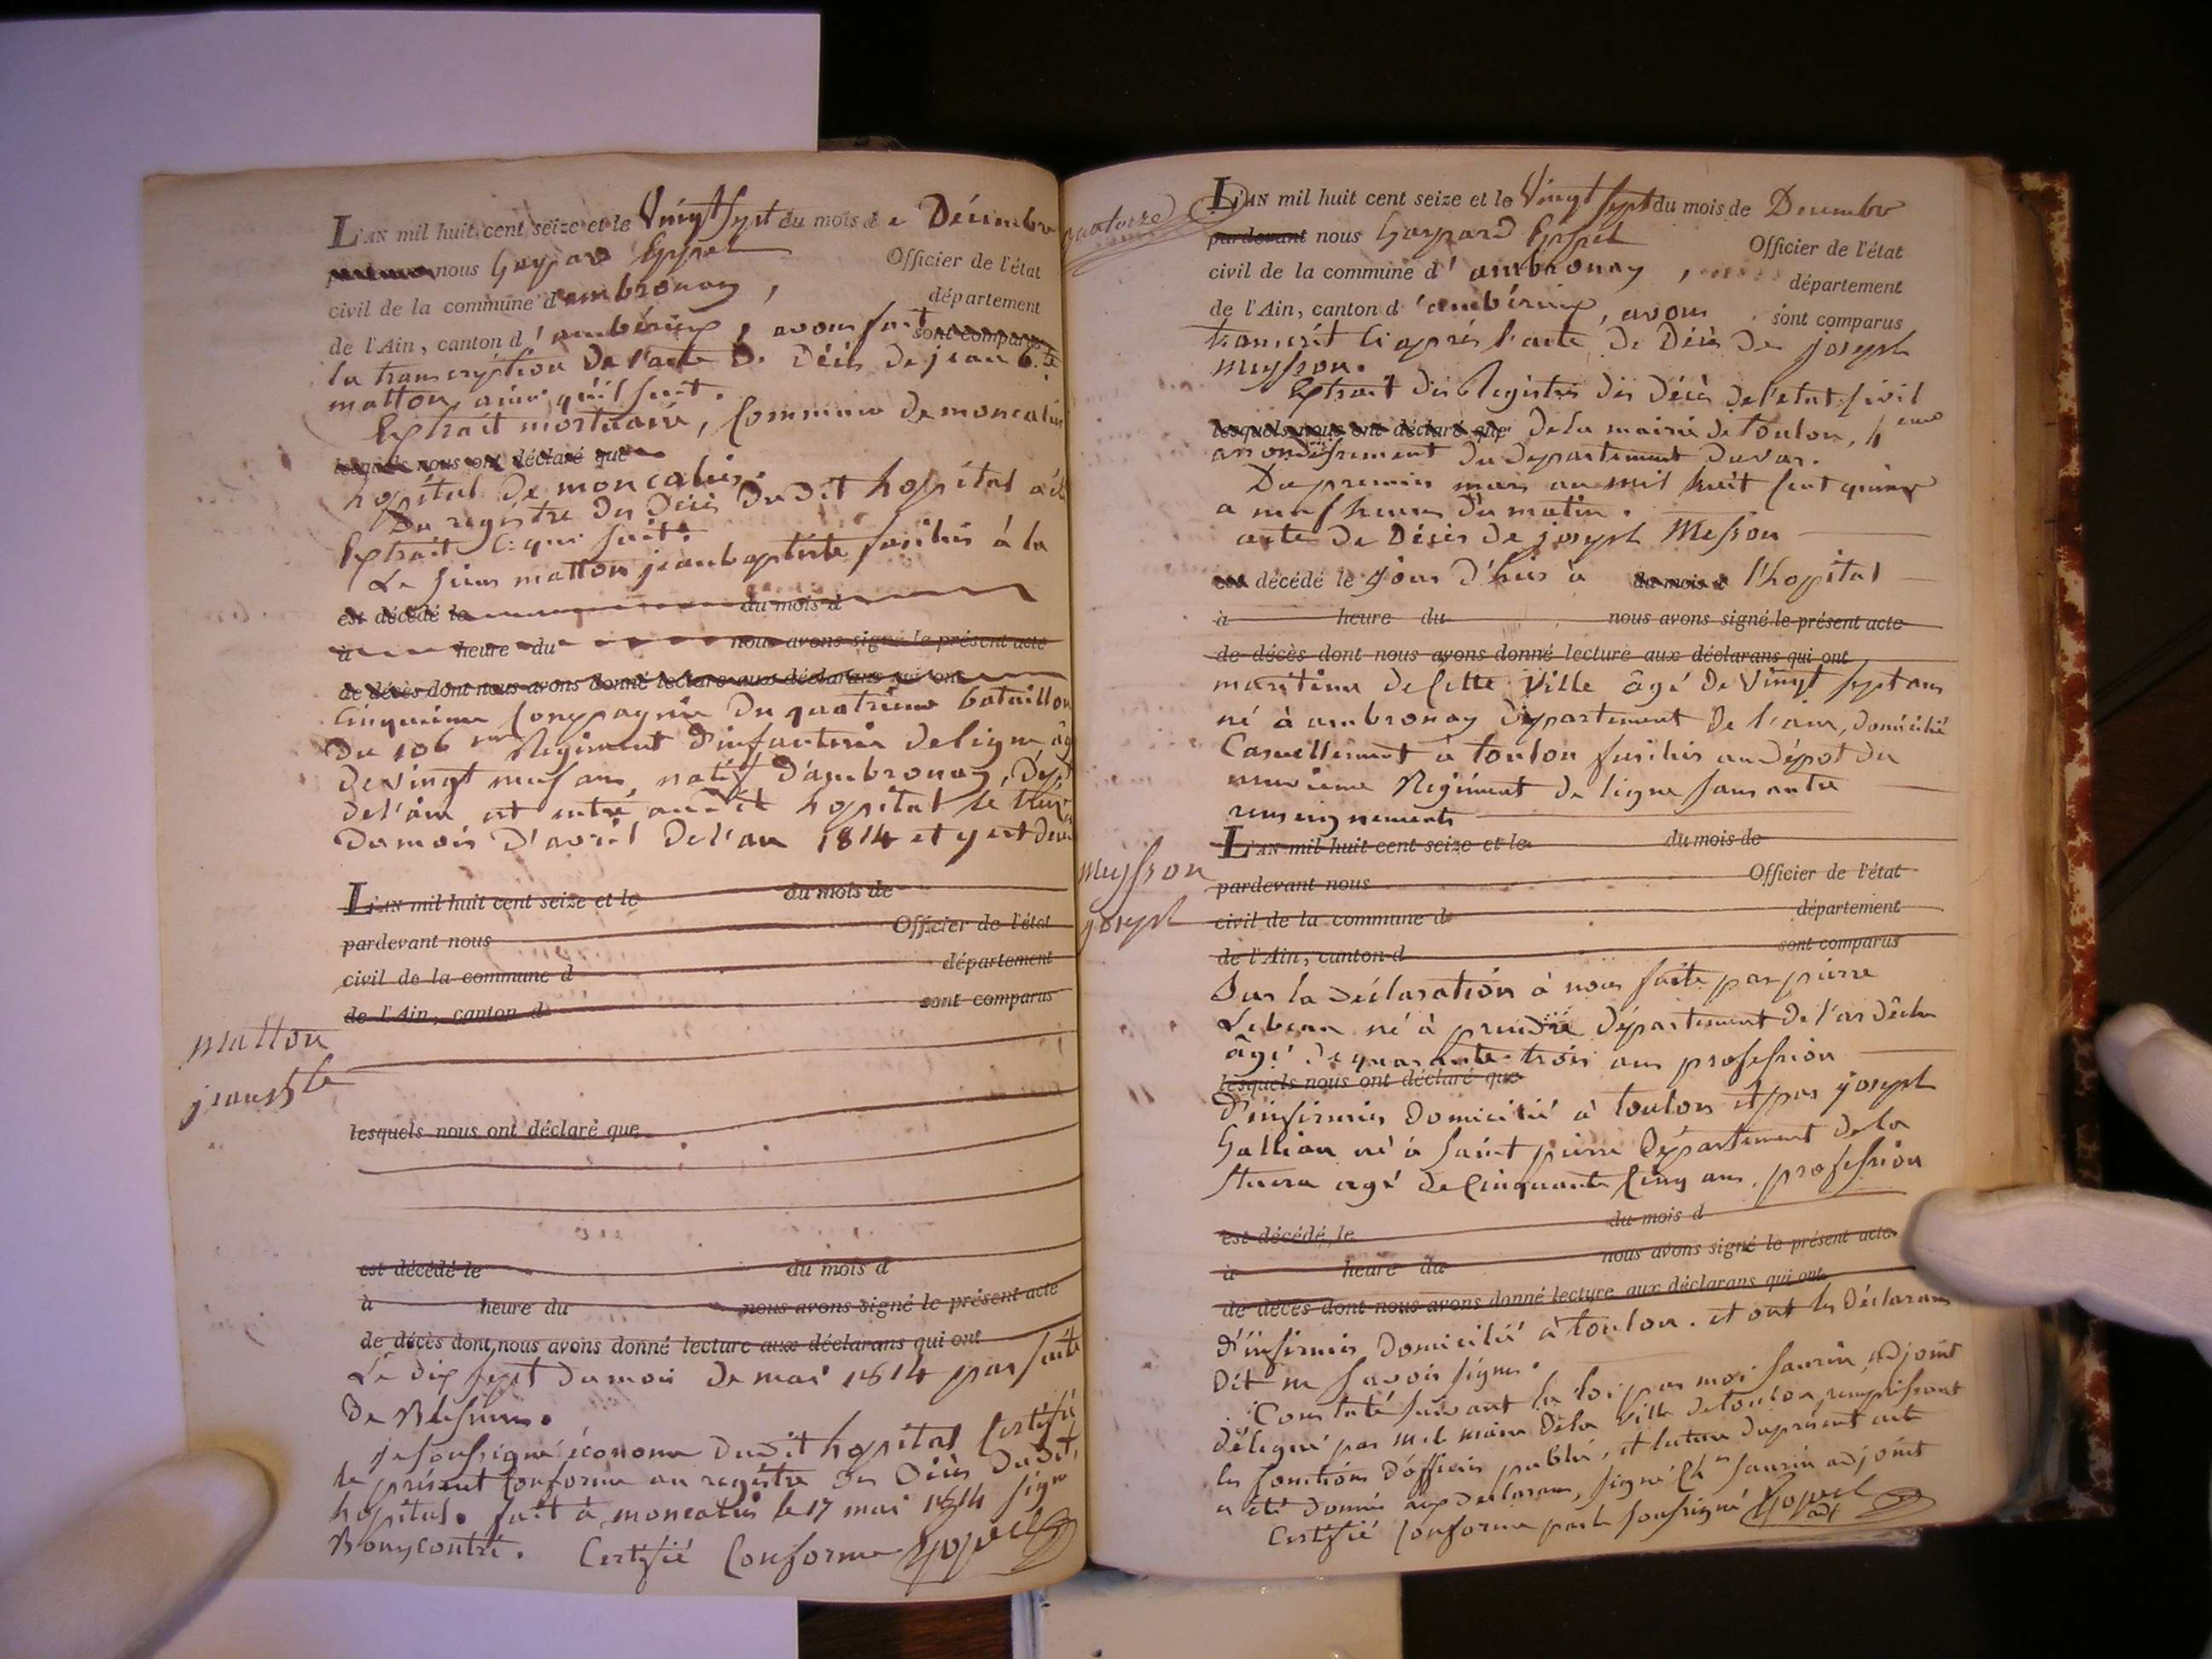 L'AN mil huit cent seize et le Vingt sept du mois de Décembre
nous Gaspard Officier de l'état
civil de la commune d'ambronay, département
de l'Ain, canton d'ambérieux, avons fait sont comparus
la transcription de l'acte de Décès de jean b.te
matton ainsi qu'il suit.
Extrait mortuaire, Commune de moncalier
lesquels nous ont déclaré que
hopital de moncalier.
Du registre des Décès dudit hopital a été
Extrait ce qui suit.
Le sieur matton jean baptiste fusilier à la
est décédé le du mois d
à heure du nous avons signé le présent acte
de décès dont nous avons donné lecture aux déclarans qui ont
Cinquième Compagnie du quatrieme bataillon
Du 106 eme Regiment d'infanterie de ligne, âgé
de vingt neuf ans, natif d'ambronay, Dépt
de l'ain est entré audit hopital le
du mois d'avril de l'an 1814 et y est
L'AN mil huit cent seize et le du mois de
pardevant nous Officier de l'état
civil de la commune d département
de l'Ain, canton d sont comparus
matton
jean bte
lesquels nous ont déclaré que
est décédé le du mois d
à heure du nous avons signé le présent acte
de décès dont nous avons donné lecture aux déclarans qui ont
Le dix sept du mois de mai 1814 par suite
De
je soussigné économe dudit hopital Certifie
le présent Conforme au registre des Décès dudit
hopital. fait à moncalier le 17 mai 1814 signé
Certifié Conforme
quatorze
L'AN mil huit cent seize et le Vingt sept du mois de Decembre
pardevant nous Gaspard Officier de l'état
civil de la commune d'ambronay, département
de l'Ain, canton d'ambérieux, avons sont comparus
transcrit ci après l'acte de Décès de joseph
meysson.
Extrait des Registres des Décès de l'etat civil
lesquels nous ont déclaré que De la mairie de Toulon, 4 eme
arrondissement du departement du var.
Du premier mars an mil huit cent quinze
a neuf heures du matin.
acte de Décès de joseph Messon
est décédé le jour d'hier à du mois d l'hopital
à heure du nous avons signé le présent acte
de décès dont nous avons donné lecture aux déclarans qui ont
maritime de cette ville âgé de vingt sept ans
né à ambronay département de l'ain, domicilié
Casuellement à toulon fusilier au dépot du
neuvieme Régiment de ligne sans autre
renseignements
L'AN mil huit cent seize et le du mois de
meysson
joseph
pardevant nous Officier de l'état
civil de la commune d département
de l'Ain, canton d sont comparus
Sur la déclaration à nous faite par pierre
Lebeau né à département de l'ardêche
âgé de quarante trois ans profession
lesquels nous ont déclaré que
d'infirmier domicilié à toulon et par joseph
Gallian né à Saint pierre Département de la
Stura agé de cinquante cinq ans, profession
est décédé, le du mois d
à heure du nous avons signé le présent acte
de décès dont nous avons donné lecture aux déclarans qui ont
d'infirmier domicilié à toulon. et ont les déclarans
Dit ne savoir signer.
Constaté suivant la loi par moi Saurin adjoint
délégué par mr le maire de la ville de toulon remplissant
les fonctions d'officier public, et lecture du présent acte
a été donnée aux déclarans, signé Saurin adjoint
Certifié Conforme par le soussigné
adj